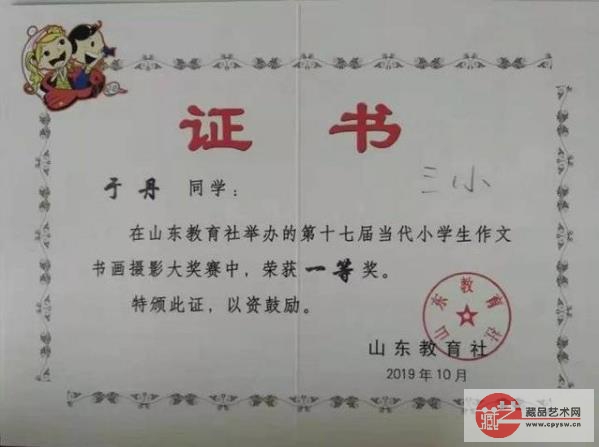 证 书
于丹 同学：
三小
在山东教育社举办的第十七届当代小学生作文
书画摄影大奖赛中，荣获一等奖。
特颁此证，以资鼓励。
山东教育社
山东教育社
2019年10月
藏品艺术网
www.cpysw.cn